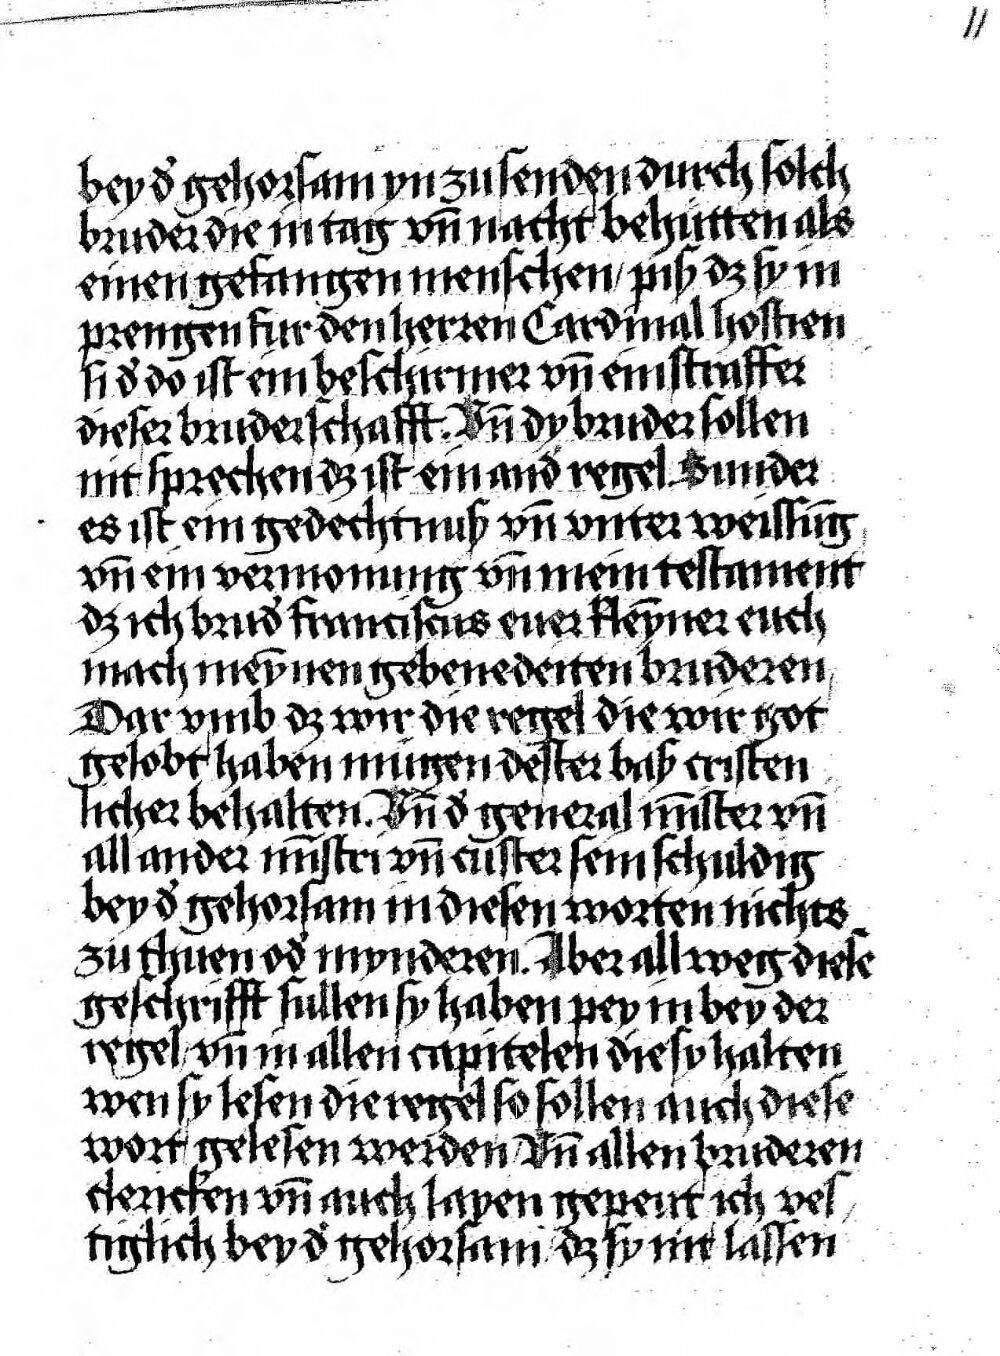 11
bey d̕ gehorsam yn zu senden durch solch
bruder die in tag vn̄ nacht behütten als
einen gefangen menschen / piß dz sy in
prengen fur den herren Cardinal hostien
si d̕ do ist ein beschirmer vn̄ ein straffer
dieser bruderschafft. Vn̄ dy bruder sollen
nit sprechen dz ist ein and̕ regel. Sunder
es ist ein gedechtnuß vn̄ vnter weissūg
vn̄ ein vermonung vn̄ mein testament
dz ich brud̕ franciscus euer kleyner euch
mach meynen gebenedeiten bruderen /
Dar vmb dz wir die regel die wir got
gelobt haben mügen dester baß cristen
licher behalten. Vn̄ d̕ general mīster vn̄
all ander mīstri vn̄ custer sein schuldig
bey d̕ gehorsam in diesen worten nichts
zü thuen od̕ mynderen. Aber all weg diese
geschrifft sullen sy haben pey in bey der
regel / vn̄ in allen capitelen die sy halten
wen sy lesen die regel so sollen auch diese
wort gelesen werden / Vn̄ allen bruderen
clericken vn̄ auch layen gepeut ich ves /
tiglich bey d̕ gehorsam dz sy nit lassen